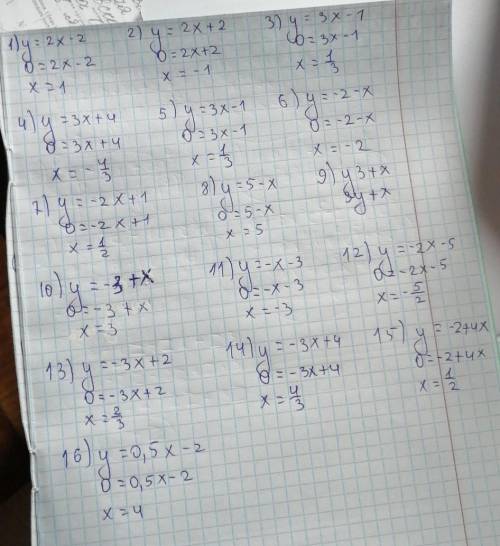 1) y = 2x - 2
0 = 2x - 2
x = 1
2) y = 2x + 2
0 = 2x + 2
x = -1
3) y = 3x - 1
0 = 3x - 1
x = 1/3
4) y = 3x + 4
0 = 3x + 4
x = -4/3
5) y = 3x - 1
0 = 3x - 1
x = 1/3
6) y = -2 - x
0 = -2 - x
x = -2
7) y = -2x + 1
0 = -2x + 1
x = 1/2
8) y = 5 - x
0 = 5 - x
x = 5
9) y3 + x
3y + x
10) y = -3 + x
0 = -3 + x
x = 3
11) y = -x - 3
0 = -x - 3
x = -3
12) y = -2x - 5
0 = -2x - 5
x = -5/2
13) y = -3x + 2
0 = -3x + 2
x = 2/3
14) y = -3x + 4
0 = -3x + 4
x = 4/3
15) y = -2 + 4x
0 = -2 + 4x
x = 1/2
16) y = 0,5x - 2
0 = 0,5x - 2
x = 4